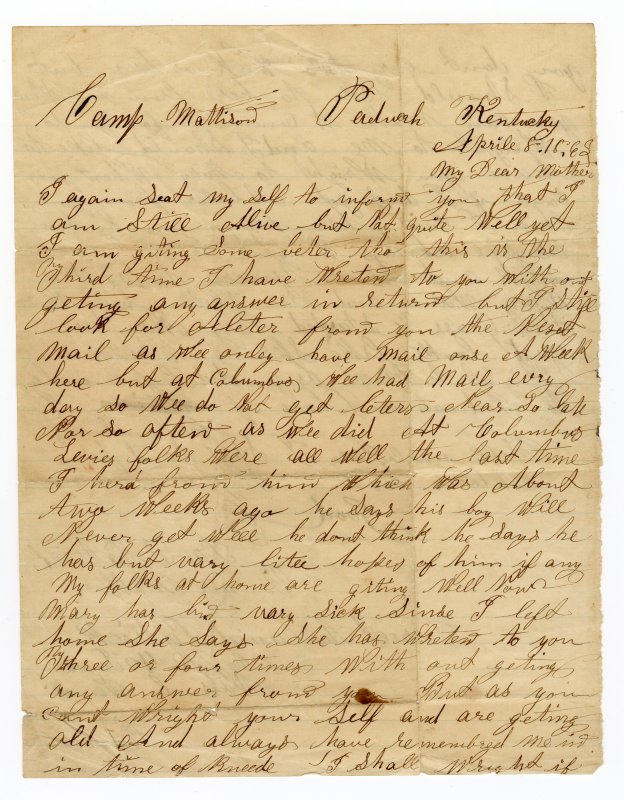 Camp Mattison Paducah Kentucky
Aprile 8. 1862
My Dear Mother
I again Seat my Self to inform you that I
am Still Alive but Not quite Well yet
I am giting Some veter tho this is the
Third time I have Wreten to you With out
geting any answer in return but I Still
look for A leter from you the Next
Mail as Wee onley have Mail onse A Week
here but at Columbus Wee had Mail evry
day So Wee do Not get leters Near So
Nor So often as Wee did At Columbus
Levies folks Were all Well the last time
I herd from him Which Was About
two Weeks ago he Says his boy Will
Never get Well he dont think he Says he
has but vary litle hopes of him if any
My folks at home are giting Well Now
Mary has bin vary Sick Sinse I left
home She Says She has Wreten to you
Three or four times With out geting
any answer from you But as you
cant Wright your Self and are geting
old And always have remembred me in
in time of Kneede I Shall Wright if